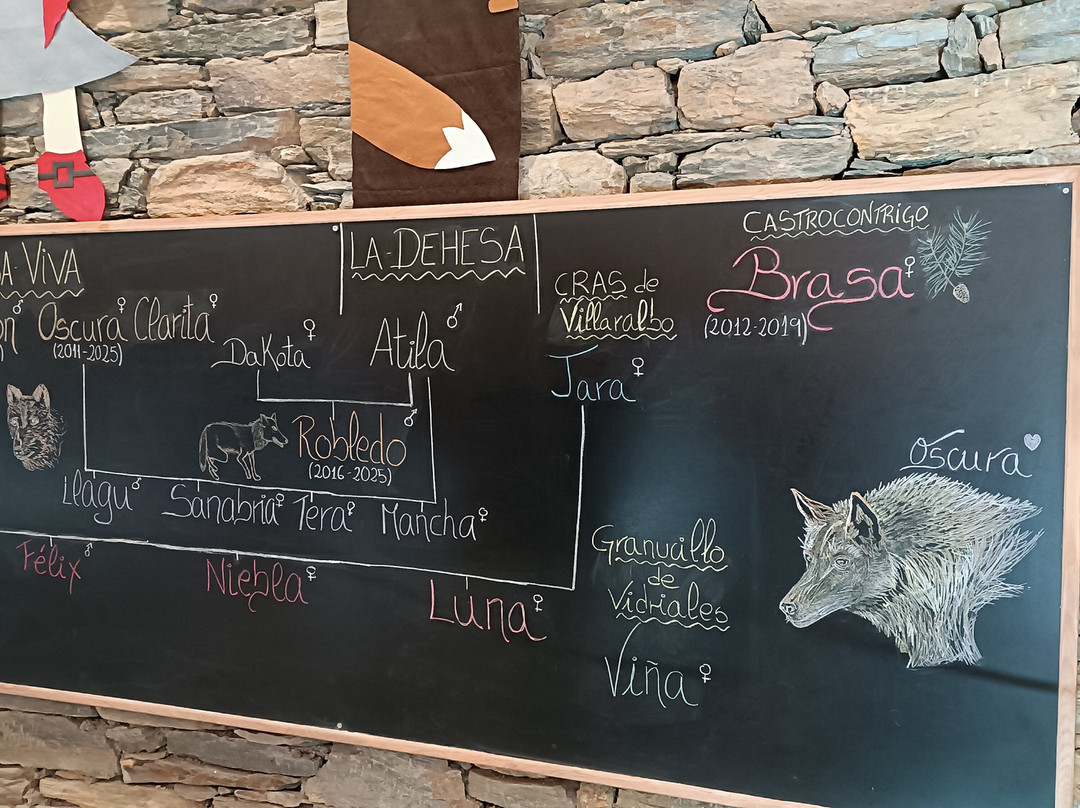 VIVA
LA-DEHESA
CRAS de
Villaralbo
CASTROCONTRIGO
Brasa♀
(2012-2019)
Oscura♀ Clarita♀
(2011-2025)
Dakota♀
Atila♂
Jara♀
Robledo♂
(2016-2025)
Oscura
Llagu♂ Sanabria♀ Tera♀ Mancha♀
Félix♂
Niebla♀
Luna♀
Granucillo
de
Vidriales
Viña♀